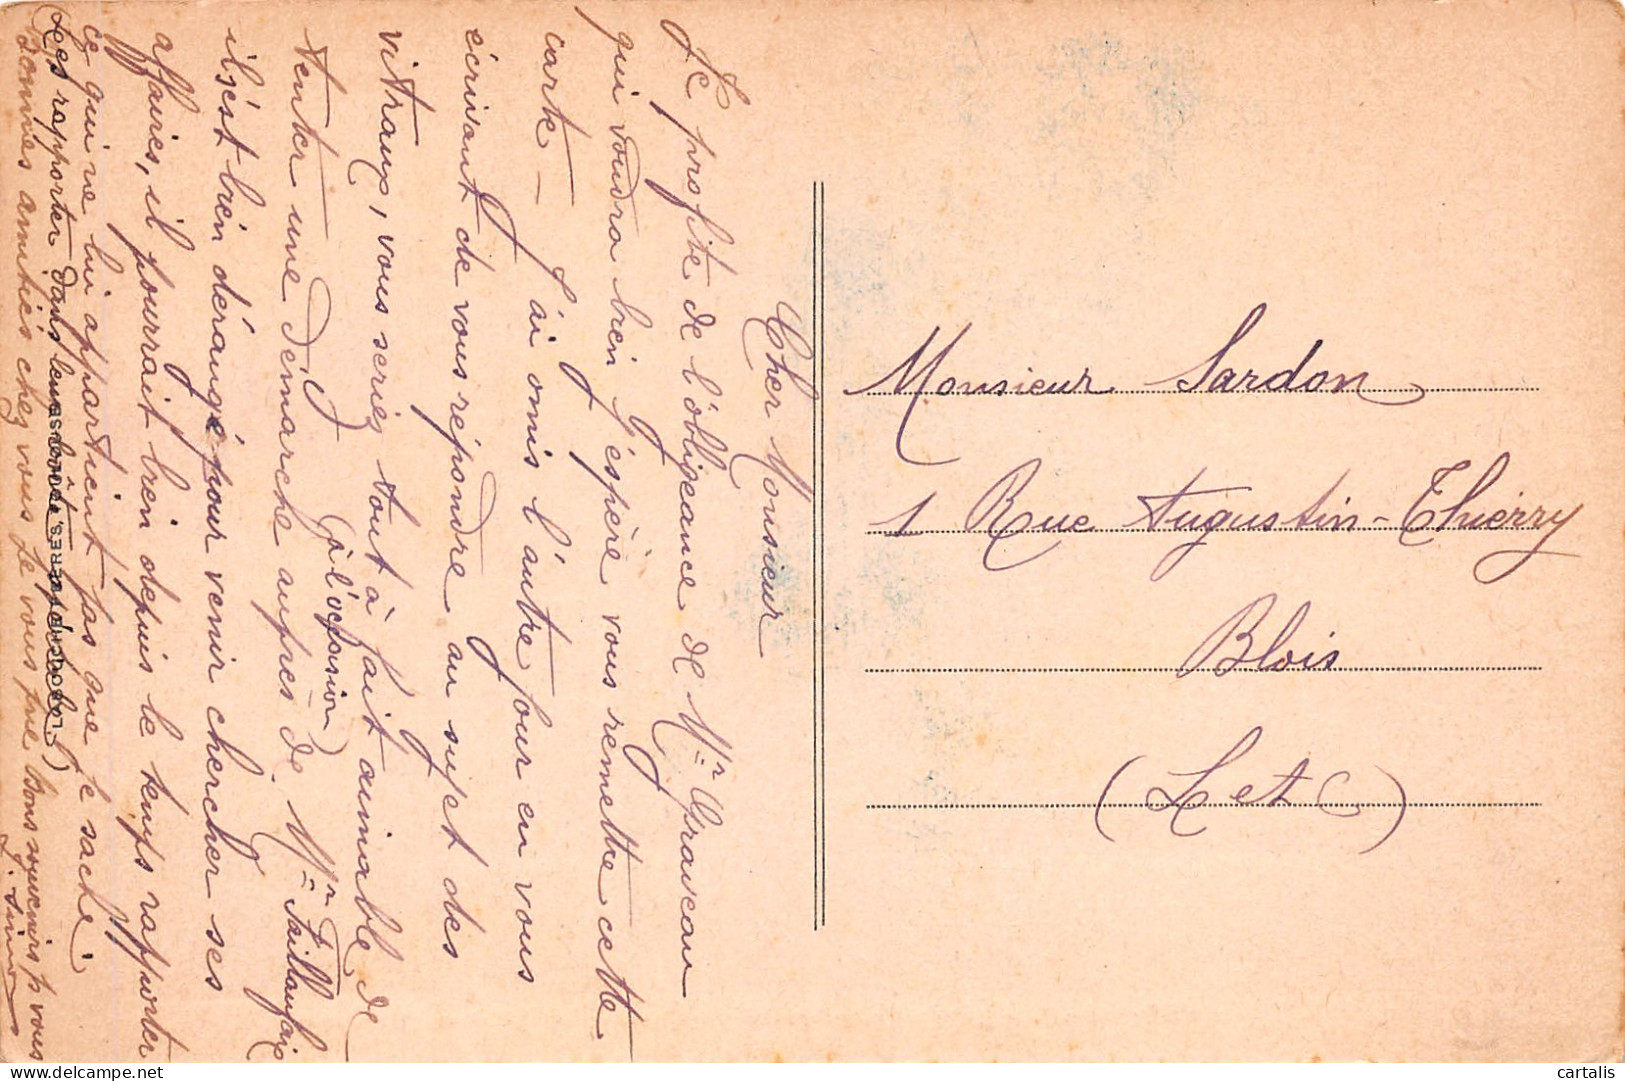 Cher Monsieur
Je profite de l'obligeance de Mr Graveau
qui voudra bien j'espère vous remettre cette
carte — J'ai omis l'autre jour en vous
écrivant de vous répondre au sujet des
vitraux, vous seriez tout à fait aimable de
(à l'occasion)
tenter une démarche auprès de Mr Taillaufaix
il s'est bien dérangé pour venir chercher ses
affaires, il pourrait bien depuis le temps rapporter
ce qui ne lui appartient pas que je sache
(Les rapporter dans leur
Bonnes amitiés chez vous De vous que bons souvenirs p vous
J. Simon
Monsieur Sardon
1 Rue Augustin-Thierry
Blois
(L et C)
cartalis